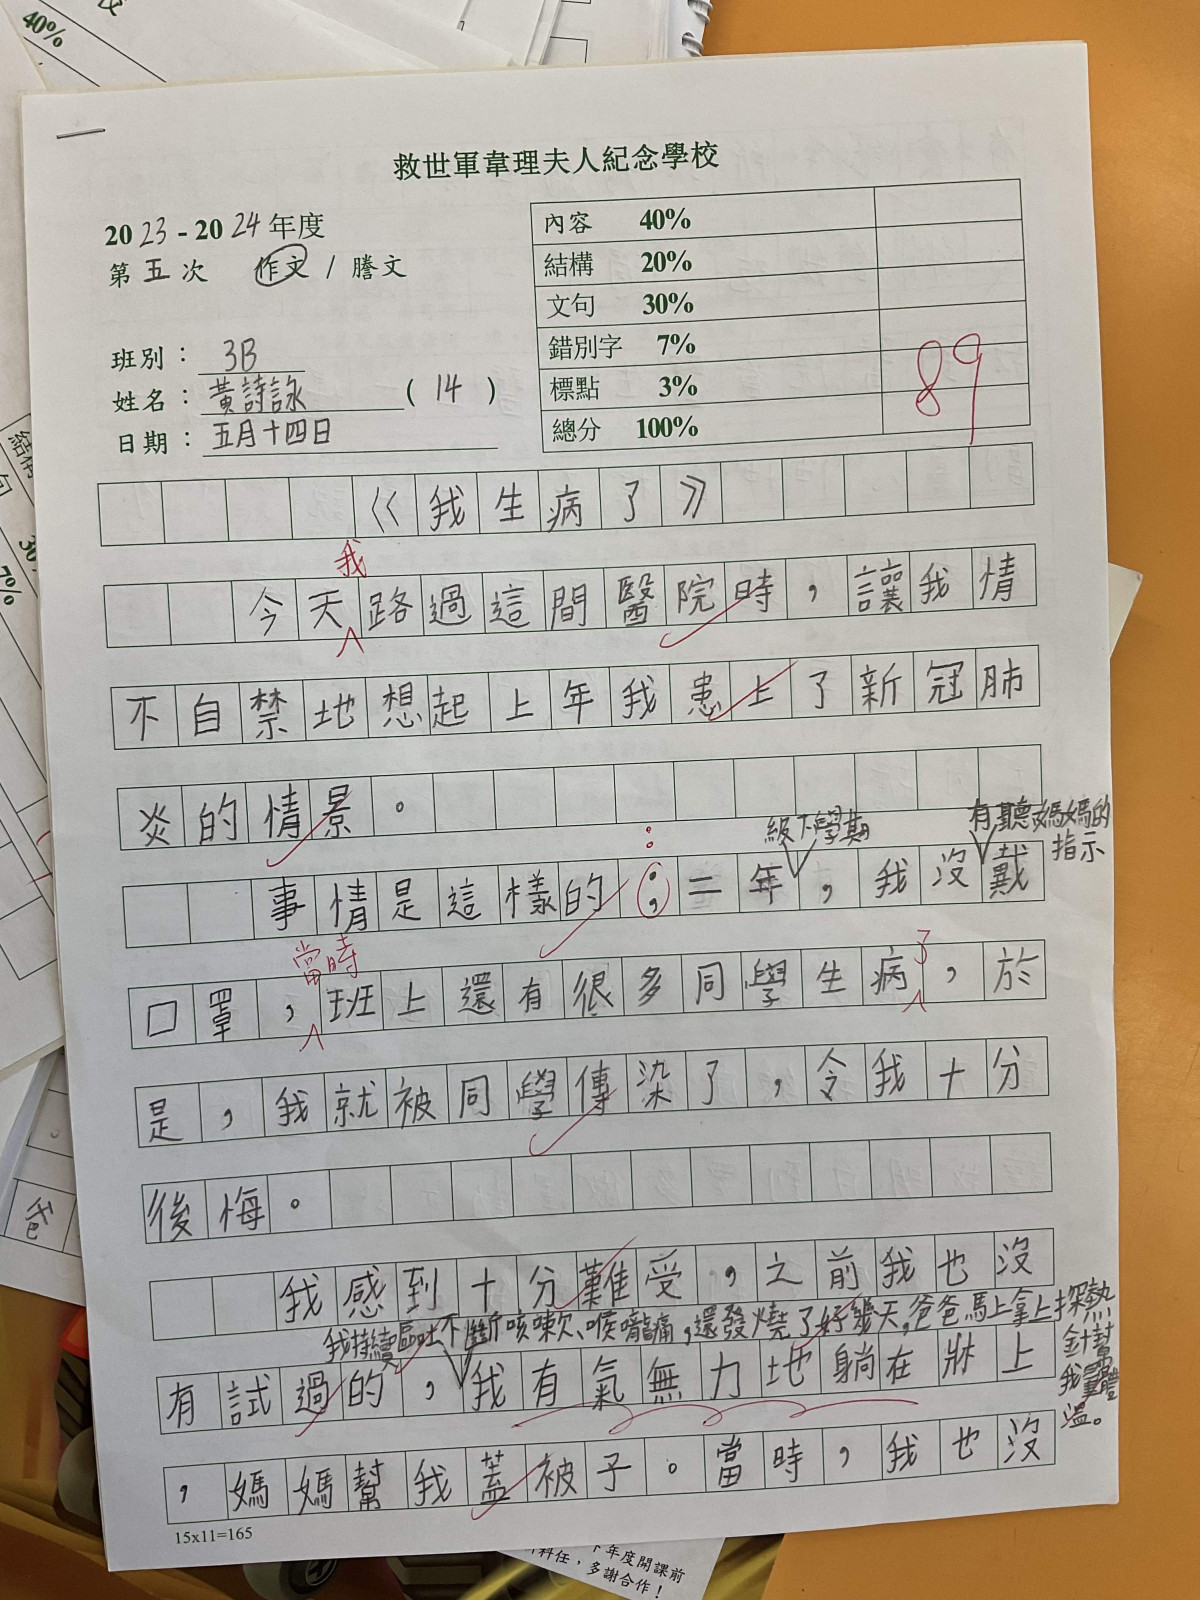 40%
救世軍韋理夫人紀念學校
2023-2024年度
第五次 作文 / 謄文
班別：3B
姓名：黃詩詠 (14)
日期：五月十四日
內容 40%
結構 20%
文句 30%
錯別字 7%
標點 3%
總分 100%
89
《我生病了》
我
今天路過這間醫院時，讓我情
不自禁地想起上年我患上了新冠肺
炎的情景。
：
級下學期
有聽媽媽的指示
事情是這樣的；二年，我沒戴
當時
了
口罩，班上還有很多同學生病，於
是，我就被同學傳染了，令我十分
後悔。
我感到十分難受，之前我也沒
我持續嘔吐不斷咳嗽、喉嚨痛，還發燒了好幾天，爸爸馬上拿上探熱針幫我量體溫。
有試過的，我有氣無力地躺在牀上
，媽媽幫我蓋被子。當時，我也沒
15x11=165
下年度開課前
科任，多謝合作！
爸